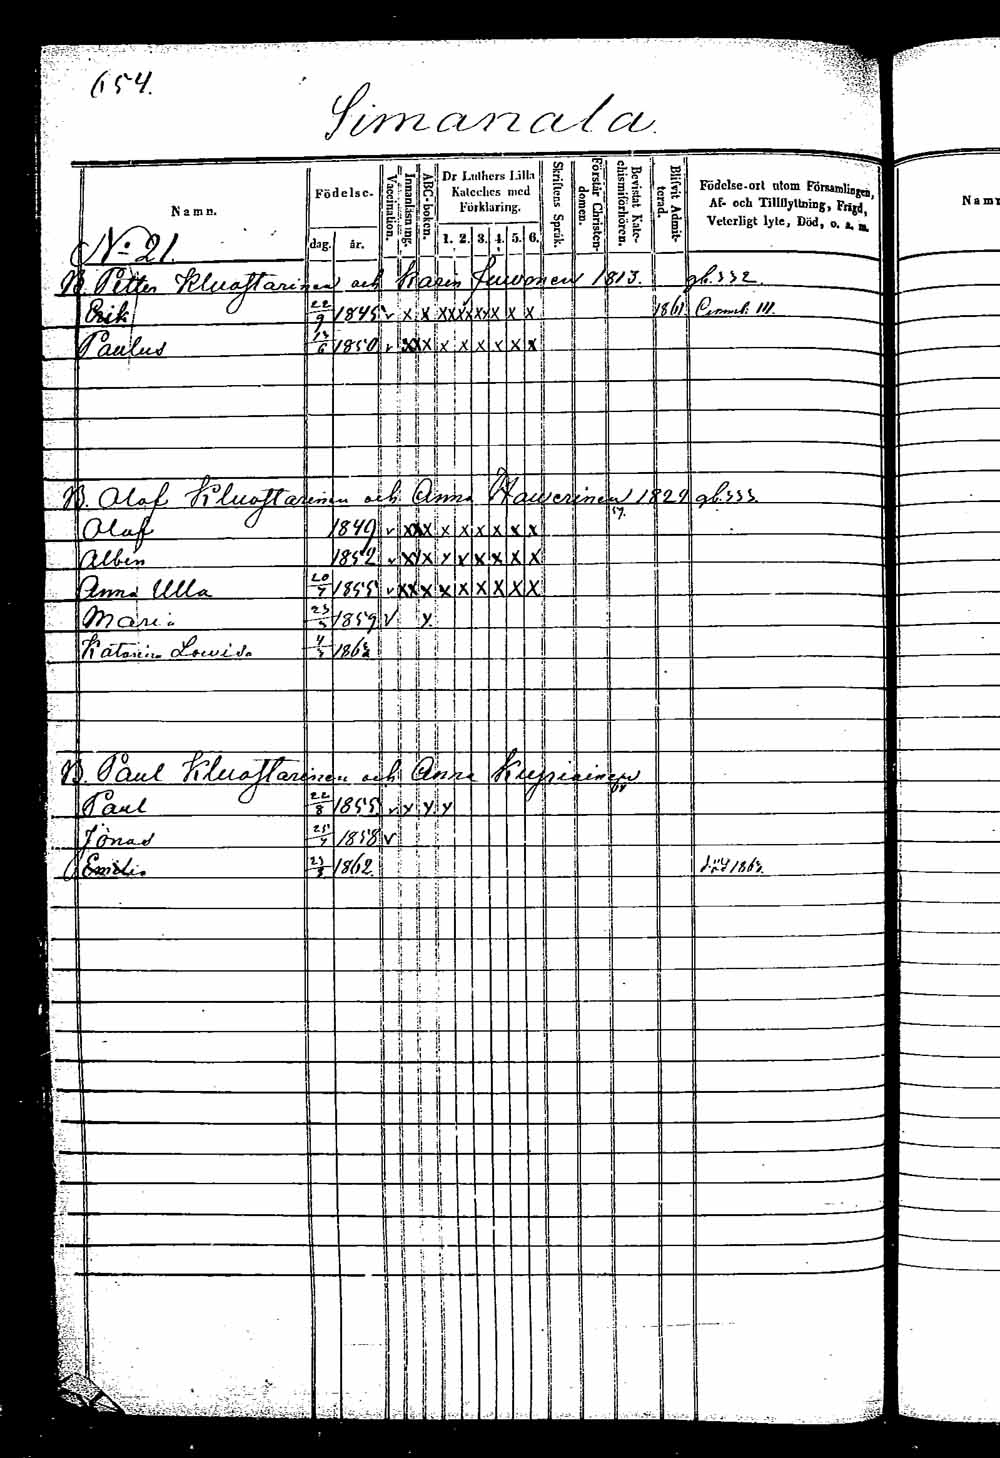 654.
Simanala.
Namn.
Födelse-
dag. år.
Vaccination.
Innanläsning.
ABC-boken.
Dr Luthers Lilla Kateches med Förklaring.
1. 2. 3. 4. 5. 6.
Skriftens Språk.
Förstår Christendomen.
Bevistat Katechismiförhören.
Blifvit Admitterad.
Födelse-ort utom Församlingen, Af- och Tillflyttning, Frägd, Veterligt lyte, Död, o. s. m.
Namn
No 21.
B. Petter Kluoftarinen och Karin Juvonen 1813. gb. 332.
Erik 22/9 1845 v x x x x x x x x x 1861
Paulus 13/6 1850 v x x x x x x x x x
B. Olof Kluoftarinen och Anna Hawerinen 1829 gb. 333.
57.
Olof 1849 v x x x x x x x x x
Albin 1852 v x x x x x x x x x
Anna Ulla 20/7 1855 v x x x x x x x x x
Maria 1859 v y
Katarina Lowisa 1863
B. Paul Kluoftarinen och Anna
Paul 22/8 1855 v y y y
Jonas 25/7 1858 v
Emilia 23/3 1862. död 1863.